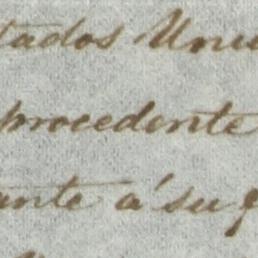 tados Uni
procedente
ante á su